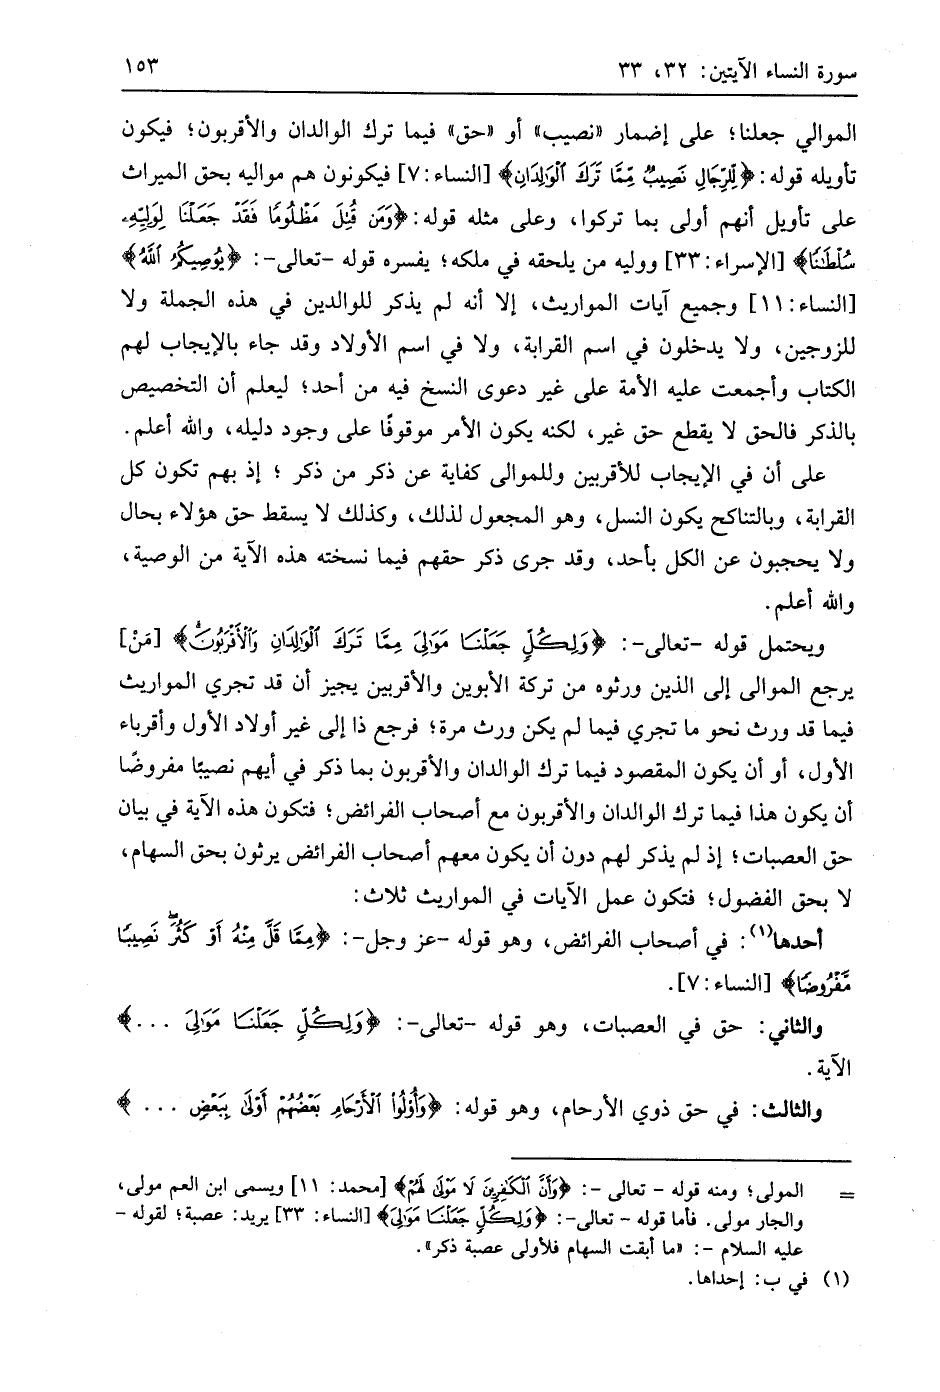 سورة النساء الآيتين: ٣٢، ٣٣
١٥٣
الموالي جعلنا؛ على إضمار «نصيب» أو «حق» فيما ترك الوالدان والأقربون؛ فيكون
تأويله قوله: ﴿لِّلرِّجَالِ نَصِيبٌ مِّمَّا تَرَكَ ٱلْوَٰلِدَانِ﴾ [النساء:٧] فيكونون هم مواليه بحق الميراث
على تأويل أنهم أولى بما تركوا، وعلى مثله قوله: ﴿وَمَن قُتِلَ مَظْلُومًا فَقَدْ جَعَلْنَا لِوَلِيِّهِۦ
سُلْطَٰنًا﴾ [الإسراء:٣٣] ووليه من يلحقه في ملكه؛ يفسره قوله -تعالى-: ﴿يُوصِيكُمُ ٱللَّهُ﴾
[النساء:١١] وجميع آيات المواريث، إلا أنه لم يذكر للوالدين في هذه الجملة ولا
للزوجين، ولا يدخلون في اسم القرابة، ولا في اسم الأولاد وقد جاء بالإيجاب لهم
الكتاب وأجمعت عليه الأمة على غير دعوى النسخ فيه من أحد؛ ليعلم أن التخصيص
بالذكر فالحق لا يقطع حق غير، لكنه يكون الأمر موقوفًا على وجود دليله، والله أعلم.
على أن في الإيجاب للأقربين وللموالى كفاية عن ذكر من ذكر ؛ إذ بهم تكون كل
القرابة، وبالتناكح يكون النسل، وهو المجعول لذلك، وكذلك لا يسقط حق هؤلاء بحال
ولا يحجبون عن الكل بأحد، وقد جرى ذكر حقهم فيما نسخته هذه الآية من الوصية،
والله أعلم.
ويحتمل قوله -تعالى-: ﴿وَلِكُلٍّ جَعَلْنَا مَوَٰلِىَ مِمَّا تَرَكَ ٱلْوَٰلِدَانِ وَٱلْأَقْرَبُونَ﴾ [مَنْ]
يرجع الموالى إلى الذين ورثوه من تركة الأبوين والأقربين يجيز أن قد تجري المواريث
فيما قد ورث نحو ما تجري فيما لم يكن ورث مرة؛ فرجع ذا إلى غير أولاد الأول وأقرباء
الأول، أو أن يكون المقصود فيما ترك الوالدان والأقربون بما ذكر في أيهم نصيبًا مفروضًا
أن يكون هذا فيما ترك الوالدان والأقربون مع أصحاب الفرائض؛ فتكون هذه الآية في بيان
حق العصبات؛ إذ لم يذكر لهم دون أن يكون معهم أصحاب الفرائض يرثون بحق السهام،
لا بحق الفضول؛ فتكون عمل الآيات في المواريث ثلاث:
أحدها(١): في أصحاب الفرائض، وهو قوله -عز وجل-: ﴿مِمَّا قَلَّ مِنْهُ أَوْ كَثُرَ نَصِيبًا
مَّفْرُوضًا﴾ [النساء:٧].
والثاني: حق في العصبات، وهو قوله -تعالى-: ﴿وَلِكُلٍّ جَعَلْنَا مَوَٰلِىَ ...﴾
الآية.
والثالث: في حق ذوي الأرحام، وهو قوله: ﴿وَأُو۟لُوا۟ ٱلْأَرْحَامِ بَعْضُهُمْ أَوْلَىٰ بِبَعْضٍ ...﴾
= المولى؛ ومنه قوله - تعالى -: ﴿وَأَنَّ ٱلْكَٰفِرِينَ لَا مَوْلَىٰ لَهُمْ﴾ [محمد: ١١] ويسمى ابن العم مولى،
والجار مولى. فأما قوله - تعالى-: ﴿وَلِكُلٍّ جَعَلْنَا مَوَٰلِىَ﴾ [النساء: ٣٣] يريد: عصبة؛ لقوله -
عليه السلام -: «ما أبقت السهام فلأولى عصبة ذكر».
(١) في ب: إحداها.